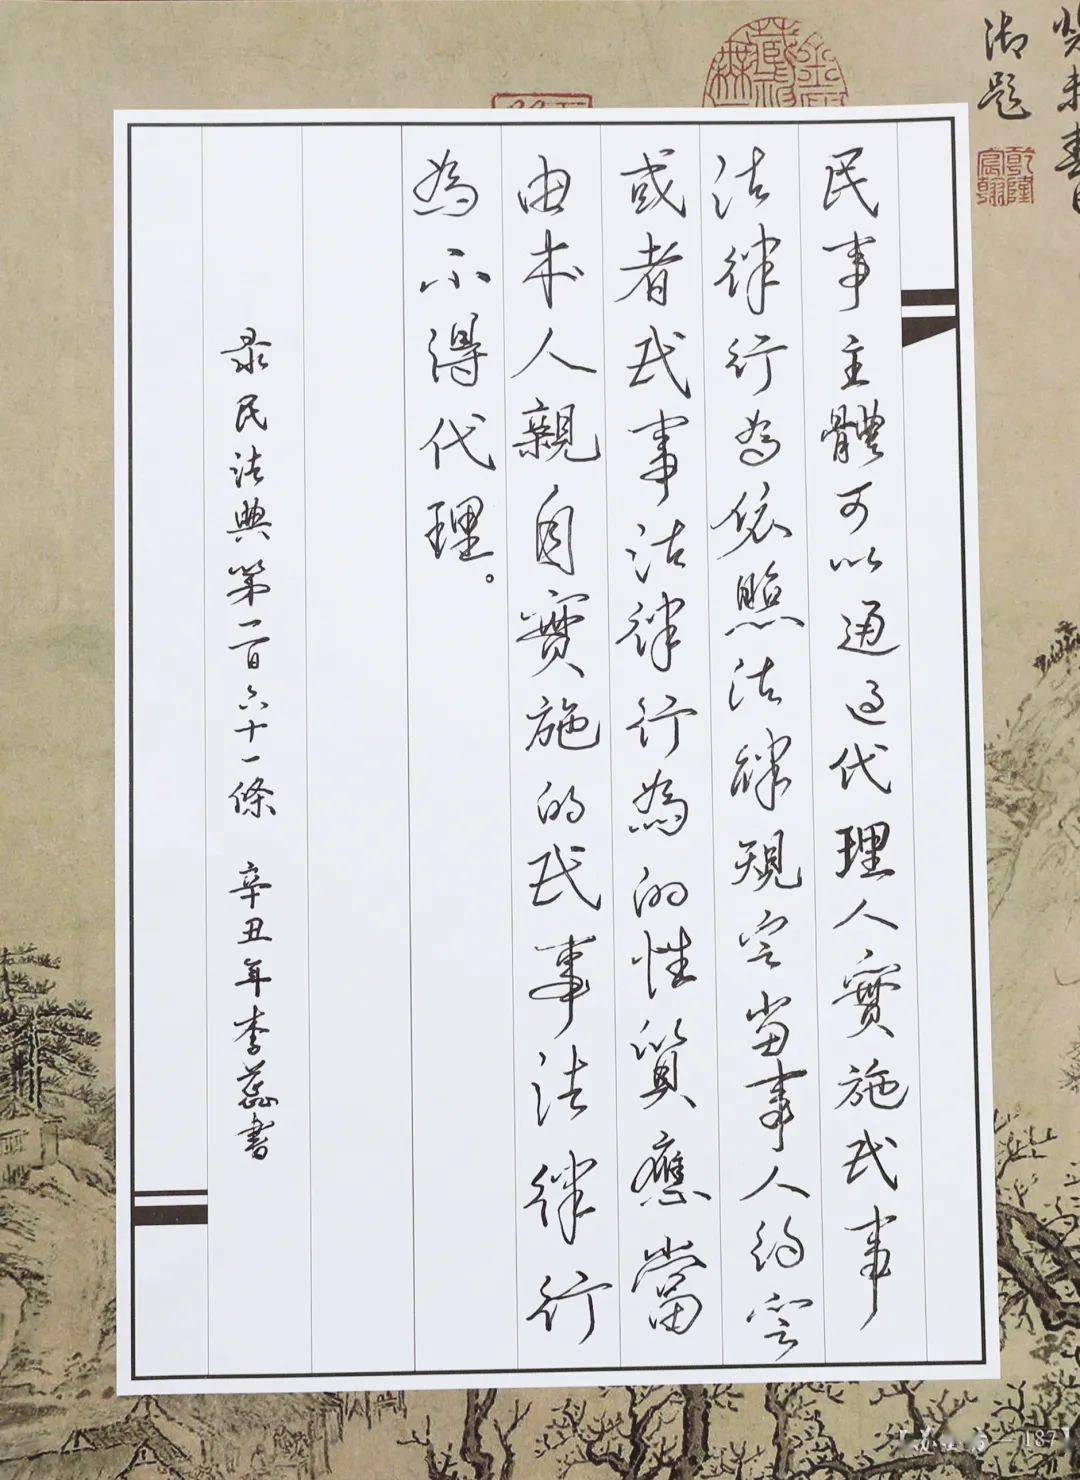 御題
乾隆宸翰
民事主體可以通過代理人實施民事
法律行為依照法律規定当事人約定
或者民事法律行為的性質應當
由本人親自實施的民事法律行
為不得代理。
录民法典第一百六十一條 辛丑年李蕊書
187